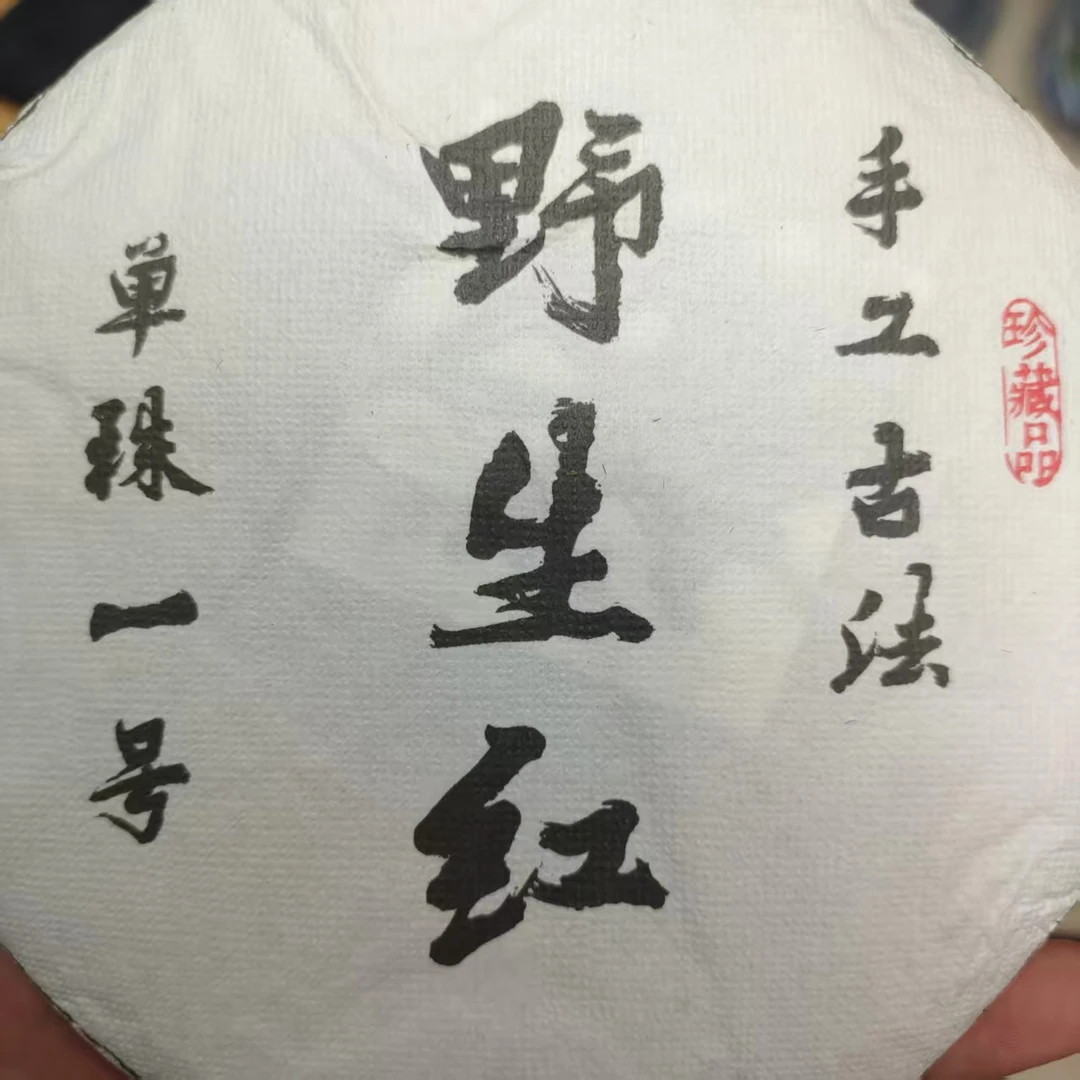 珍藏品
手工古法
野生红
单珠一号